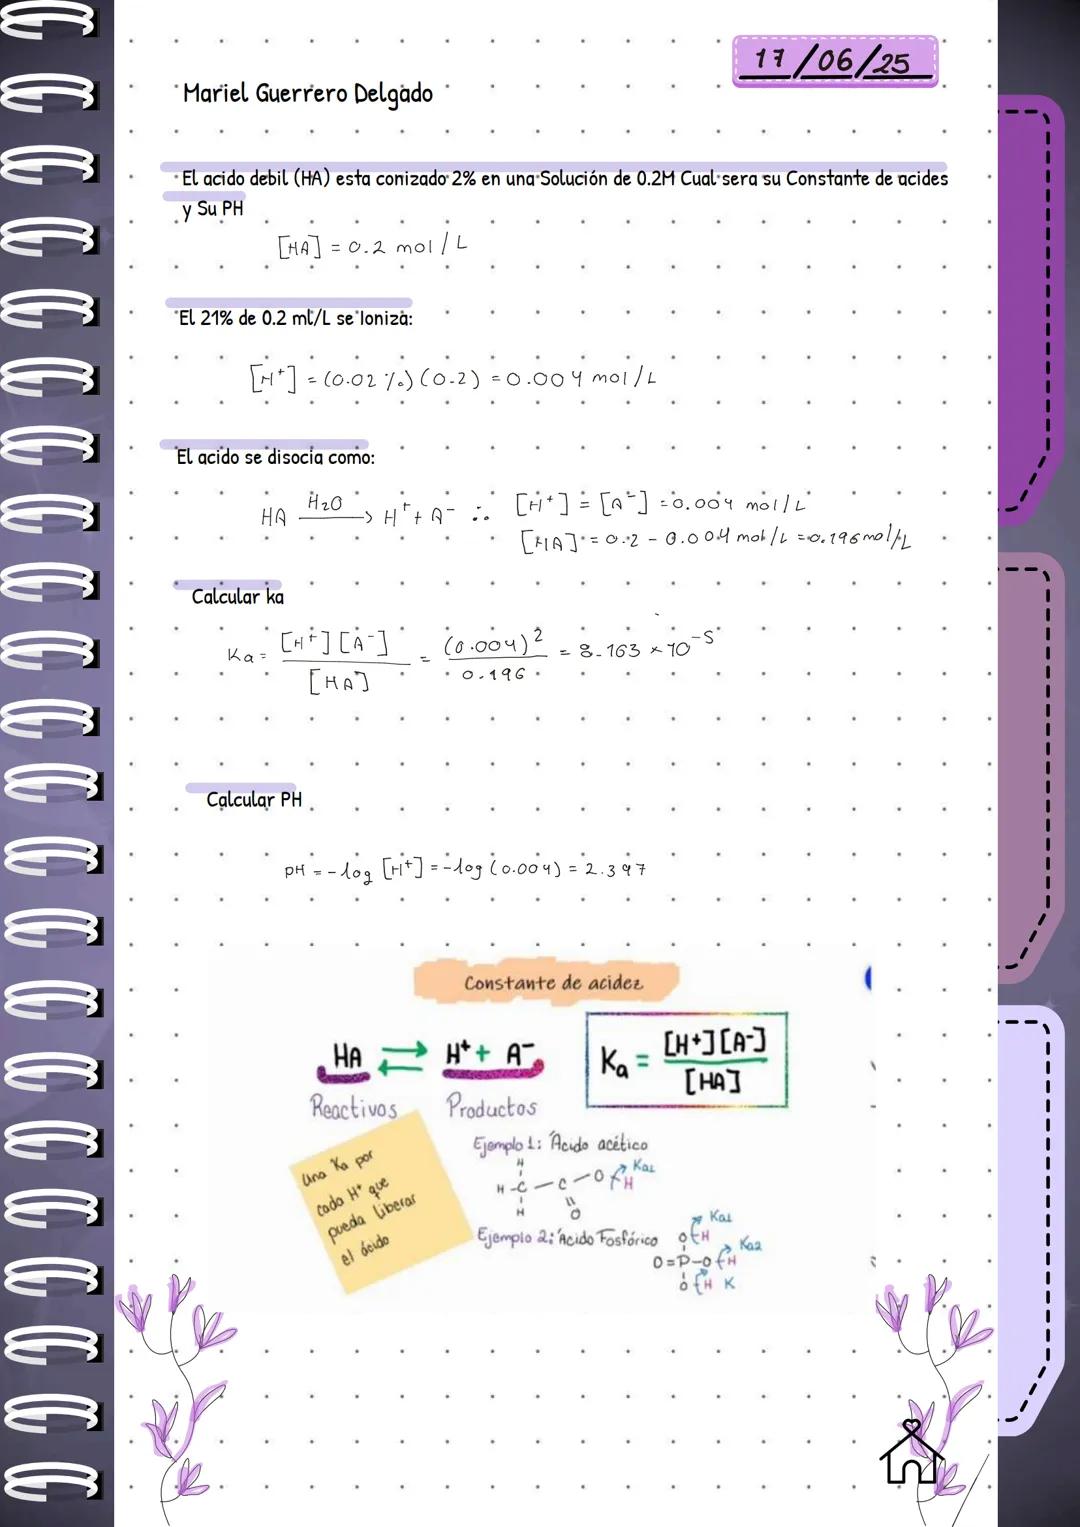 17/06/25
Mariel Guerrero Delgado
El acido debil (HA) esta conizado 2% en una Solución de 0.2M Cual sera su Constante de acides
y Su PH
[HA] = 0.2 mol/L
El 21% de 0.2 ml/L se Ioniza:
[H⁺] = (0.02%)(0.2) = 0.004 mol/L
El acido se disocia como:
HA H₂O → H⁺ + A⁻ ∴ [H⁺] = [A⁻] = 0.004 mol/L
[HA] = 0.2 - 0.004 mol/L = 0.196 mol/L
Calcular ka
Ka = [H⁺][A⁻] / [HA] = (0.004)² / 0.196 = 8.163 × 10⁻⁵
Calcular PH
pH = -log [H⁺] = -log (0.004) = 2.397
Constante de acidez
HA ⇄ H⁺ + A⁻
Ka = [H⁺][A⁻] / [HA]
Reactivos Productos
Una Ka por
cada H⁺ que
pueda liberar
el ácido
Ejemplo 1: Ácido acético
H
H-C-C-O H Ka1
H O
Ejemplo 2: Ácido Fosfórico
O H Ka1
O=P-O H Ka2
O H K